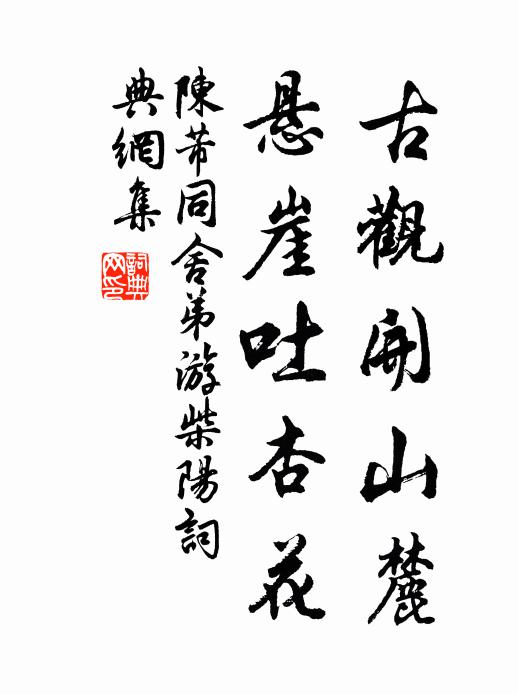 古觀開山麓
懸崖吐杏花
陳芾同舍弟游柴陽詞
典網集
詞典网印